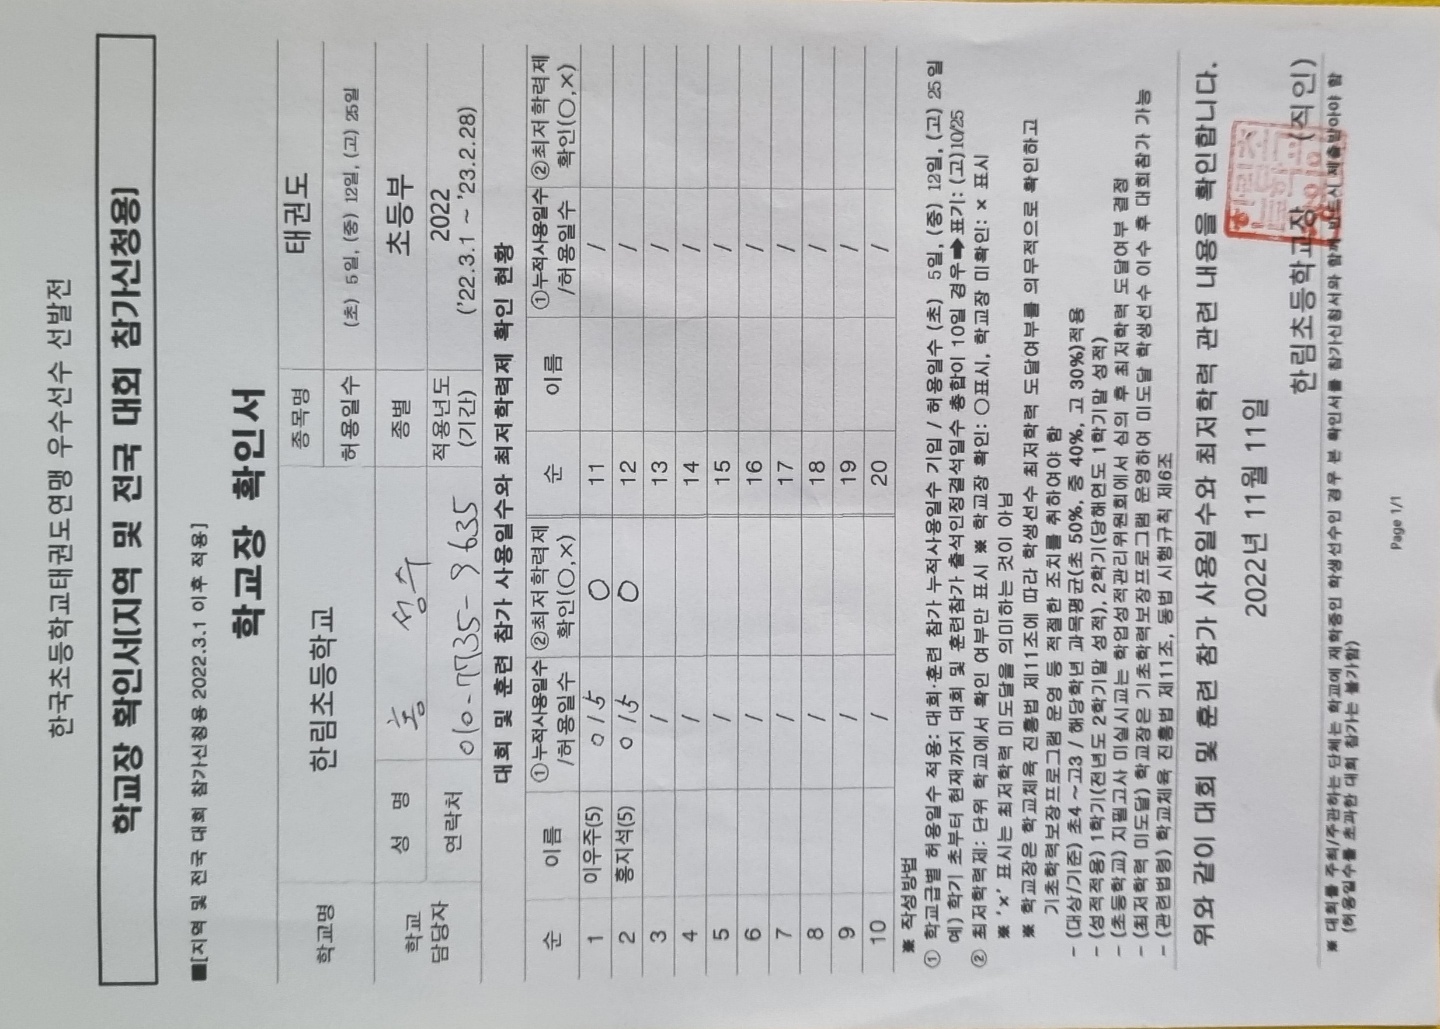 한국초등학교태권도연맹 우수선수 선발전
학교장 확인서(지역 및 전국 대회 참가신청용)
■[지역 및 전국 대회 참가신청용 2022.3.1 이후 적용]
학교장 확인서
학교명 한림초등학교 종목명 태권도
허용일수 (초) 5일, (중) 12일, (고) 25일
학교 담당자 성 명 홍 성수 종별 초등부
연락처 010-7735-9635 적용년도 (기간) 2022 ('22.3.1 ~ '23.2.28)
대회 및 훈련 참가 사용일수와 최저학력제 확인 현황
순 이름 ①누적사용일수 /허용일수 ②최저학력제 확인(○,×) 순 이름 ①누적사용일수 /허용일수 ②최저학력제 확인(○,×)
1 이우주(5) 0/5 ○ 11 /
2 홍지석(5) 0/5 ○ 12 /
3 / 13 /
4 / 14 /
5 / 15 /
6 / 16 /
7 / 17 /
8 / 18 /
9 / 19 /
10 / 20 /
※ 작성방법
① 학교급별 허용일수 적용: 대회·훈련 참가 누적사용일수 기입 / 허용일수 (초) 5일, (중) 12일, (고) 25일
예) 학기 초부터 현재까지 대회 및 훈련참가 출석인정결석일수 총합이 10일 경우➡표기: (고)10/25
② 최저학력제: 단위 학교에서 확인 여부만 표시 ※ 학교장 확인: ○표시, 학교장 미확인: × 표시
※ '×' 표시는 최저학력 미도달을 의미하는 것이 아님
※ 학교장은 학교체육 진흥법 제11조에 따라 학생선수 최저학력 도달여부를 의무적으로 확인하고
기초학력보장프로그램 운영 등 적절한 조치를 취하여야 함
- (대상/기준) 초4 ~고3 / 해당학년 과목평균(초 50%, 중 40%, 고 30%)적용
- (성적적용) 1학기(전년도 2학기말 성적), 2학기(당해연도 1학기말 성적)
- (초등학교) 지필고사 미실시교는 학업성적관리위원회에서 심의 후 최저학력 도달여부 결정
- (최저학력 미도달) 학교장은 기초학력보장프로그램 운영하여 미도달 학생선수 이수 후 대회참가 가능
- (관련법령) 학교체육 진흥법 제11조, 동법 시행규칙 제6조
위와 같이 대회 및 훈련 참가 사용일수와 최저학력 관련 내용을 확인합니다.
2022년 11월 11일
한림초등학교장 (직인)
※ 대회를 주최/주관하는 단체는 학교에 재학중인 학생선수인 경우 본 확인서를 참가신청서와 함께 반드시 제출받아야 함
(허용일수를 초과한 대회 참가는 불가함)
Page 1/1